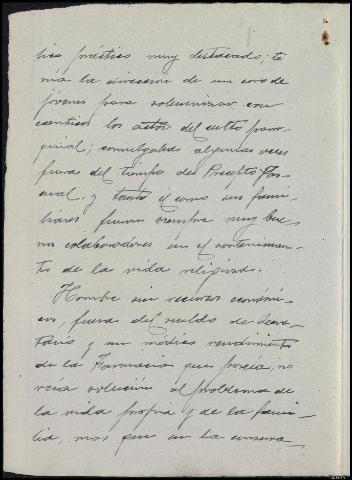 lico práctico muy destacado; te
nía la dirección de un coro de
jóvenes para solemnizar con
canticos los actos del culto parro-
quial; comulgaba algunas veces
fuera del tiempo de Precepto Pas-
cual, y tanto él como sus fami-
liares fueron siempre muy bue-
nos colaboradores en el sostenimien-
to de la vida religiosa.
Hombre sin recursos económi-
cos, fuera del sueldo de Secre-
tario y un módico rendimiento
de la Farmacia que poseía, no
veía solución al problema de
la vida propia y de la fami-
lia, mas que en la